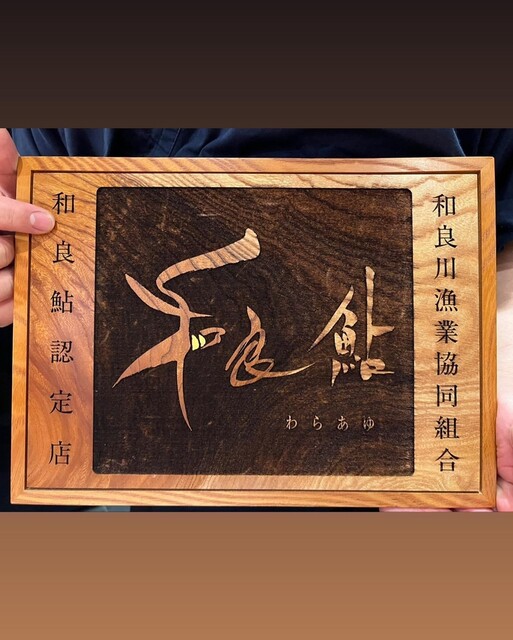 和良川漁業協同組合
和良鮎
わらあゆ
和良鮎認定店